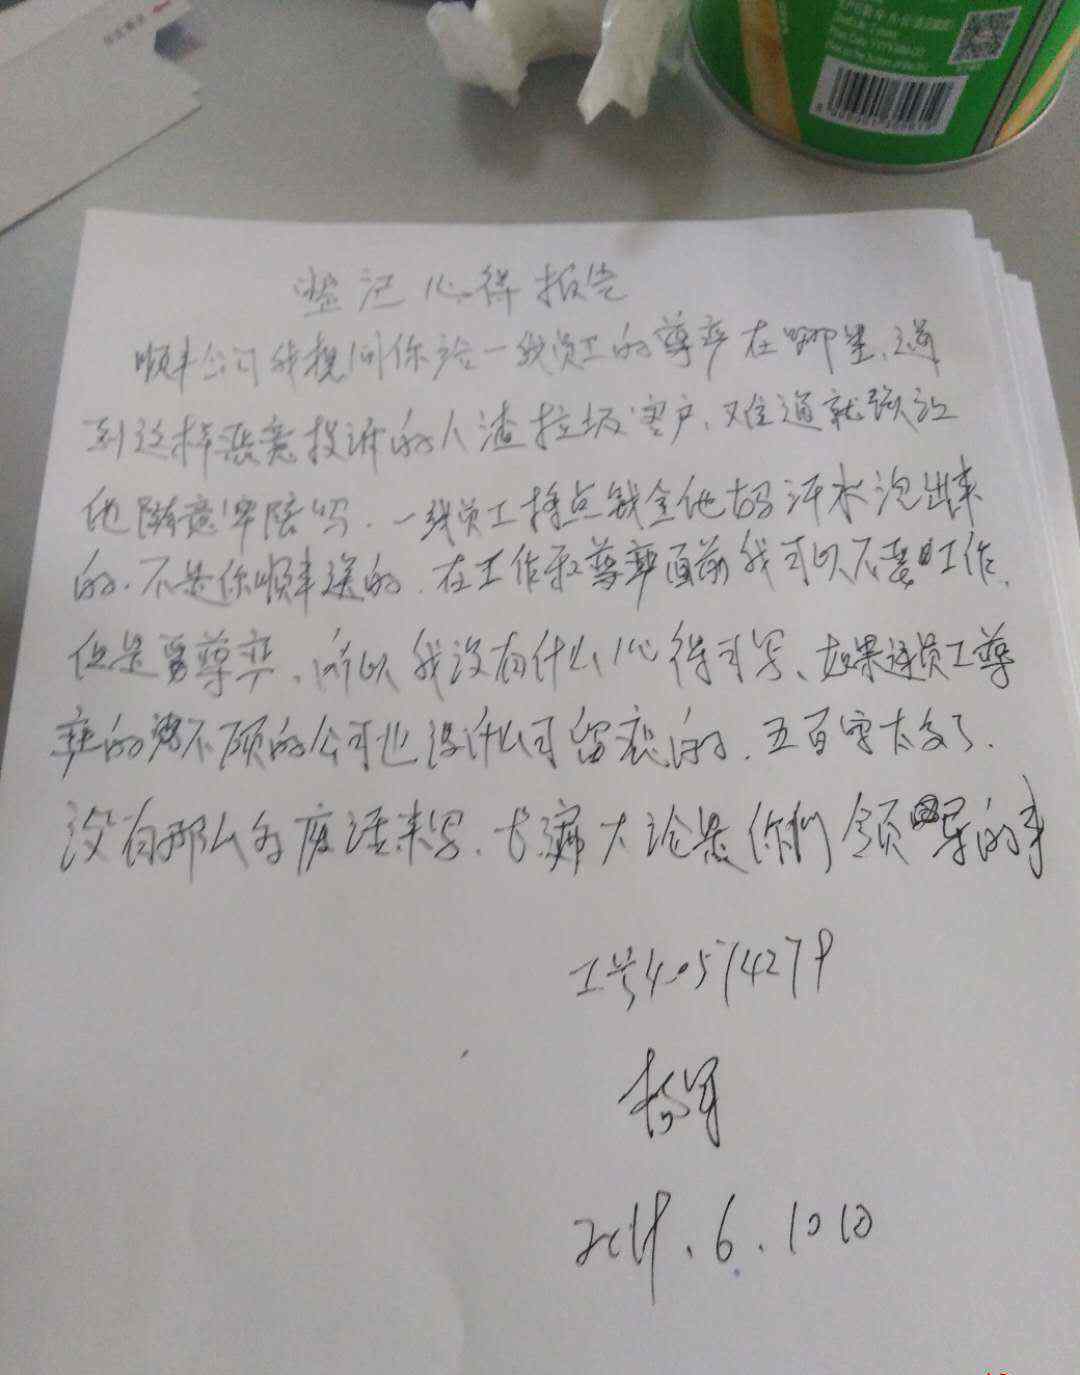 心得报告
顺丰公司我想问你给一线员工的尊严在哪里、遇
到这样恶意投诉的人渣拉圾客户、难道就强让
他随意索赔吗.一线员工挣点钱全他妈汗水泡出来
的.不是你顺丰送的.在工作和尊严面前我可以不要工作.
但是要尊严.所以我没有什么心得可写、如果连员工尊
严的都不顾的公司也没什么可留恋的.五百字太多了.
没有那么多废话来写.长篇大论是你们领导的事
工号40574279
6.10日